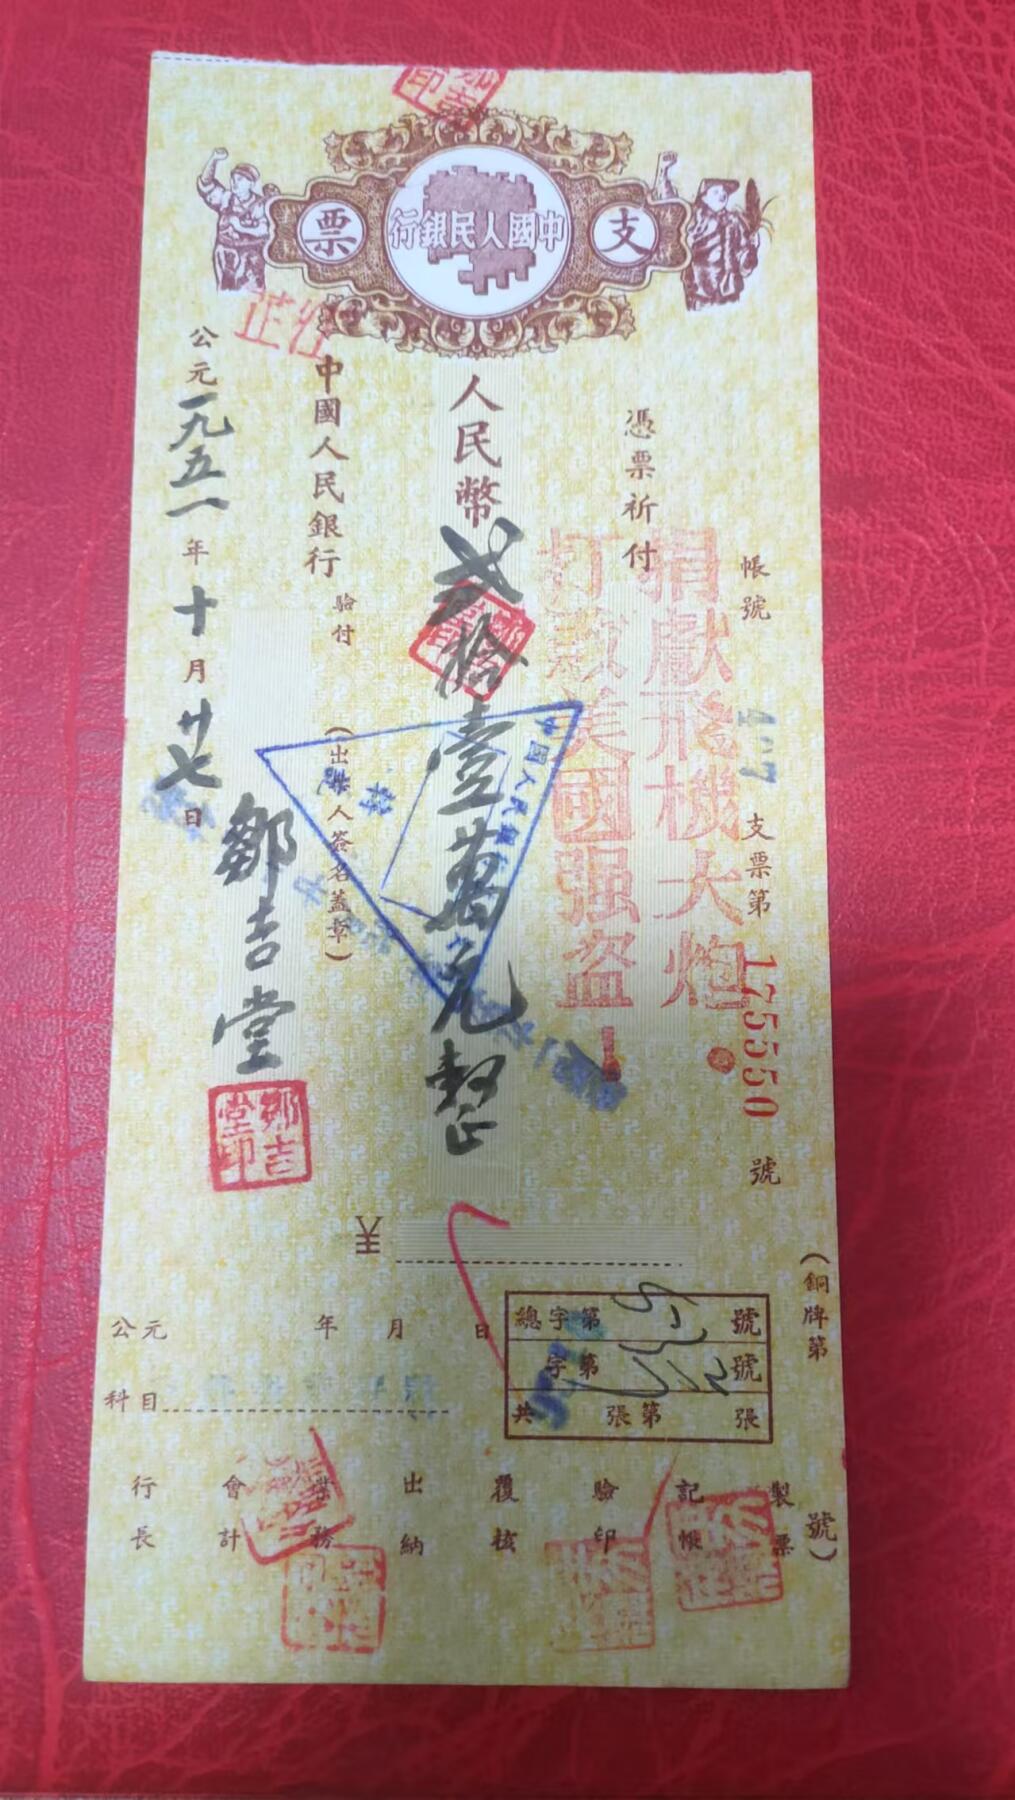 支票
中國人民銀行
帳號 407 支票第 175550 號
捐獻飛機大炮
打敗美國强盗！
憑票祈付
人民幣 貳拾壹萬元整
中國人民銀行 驗付
(出票人簽名蓋章)
鄒吉堂
鄒吉堂印
公元一九五一年十月廿七日
中國人民銀行
(銅牌第 號)
總字第 號
字第 號
共 張第 張
公元 年 月 日
科目
製票
記帳
驗印
覆核
出納
業務
會計
行長